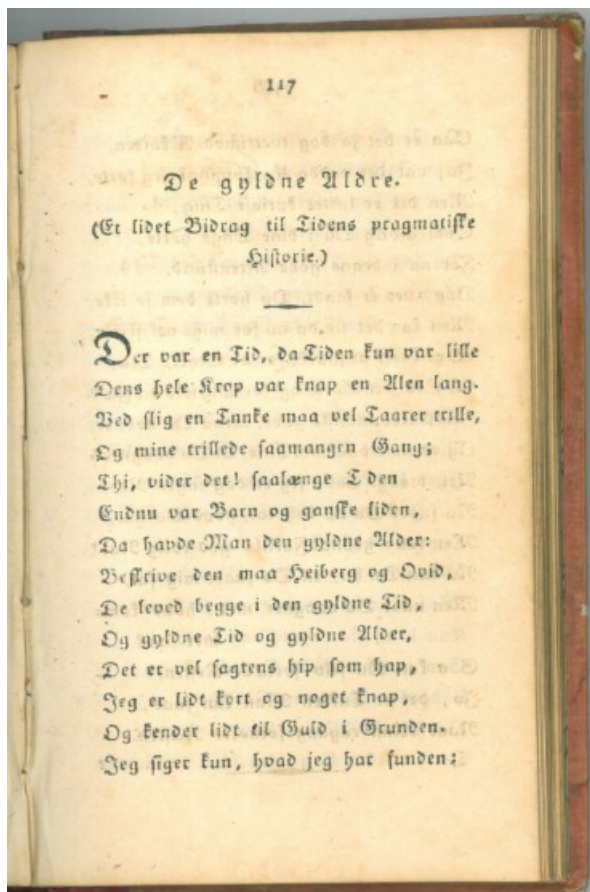 117
De gyldne Aldre.
(Et lidet Bidrag til Tidens pragmatiske
Historie.)
Der var en Tid, da Tiden kun var lille
Dens hele Krop var knap en Alen lang.
Ved slig en Tanke maa vel Taarer trille,
Og mine trillede saamangen Gang;
Thi, vider det! saalænge T den
Endnu var Barn og ganske liden,
Da havde Man den gyldne Alder:
Beskrive den maa Heiberg og Ovid,
De leved begge i den gyldne Tid,
Og gyldne Tid og gyldne Alder,
Det er vel sagtens hip som hap,
Jeg er lidt kort og noget knap,
Og kender lidt til Guld i Grunden.
Jeg siger kun, hvad jeg har funden: